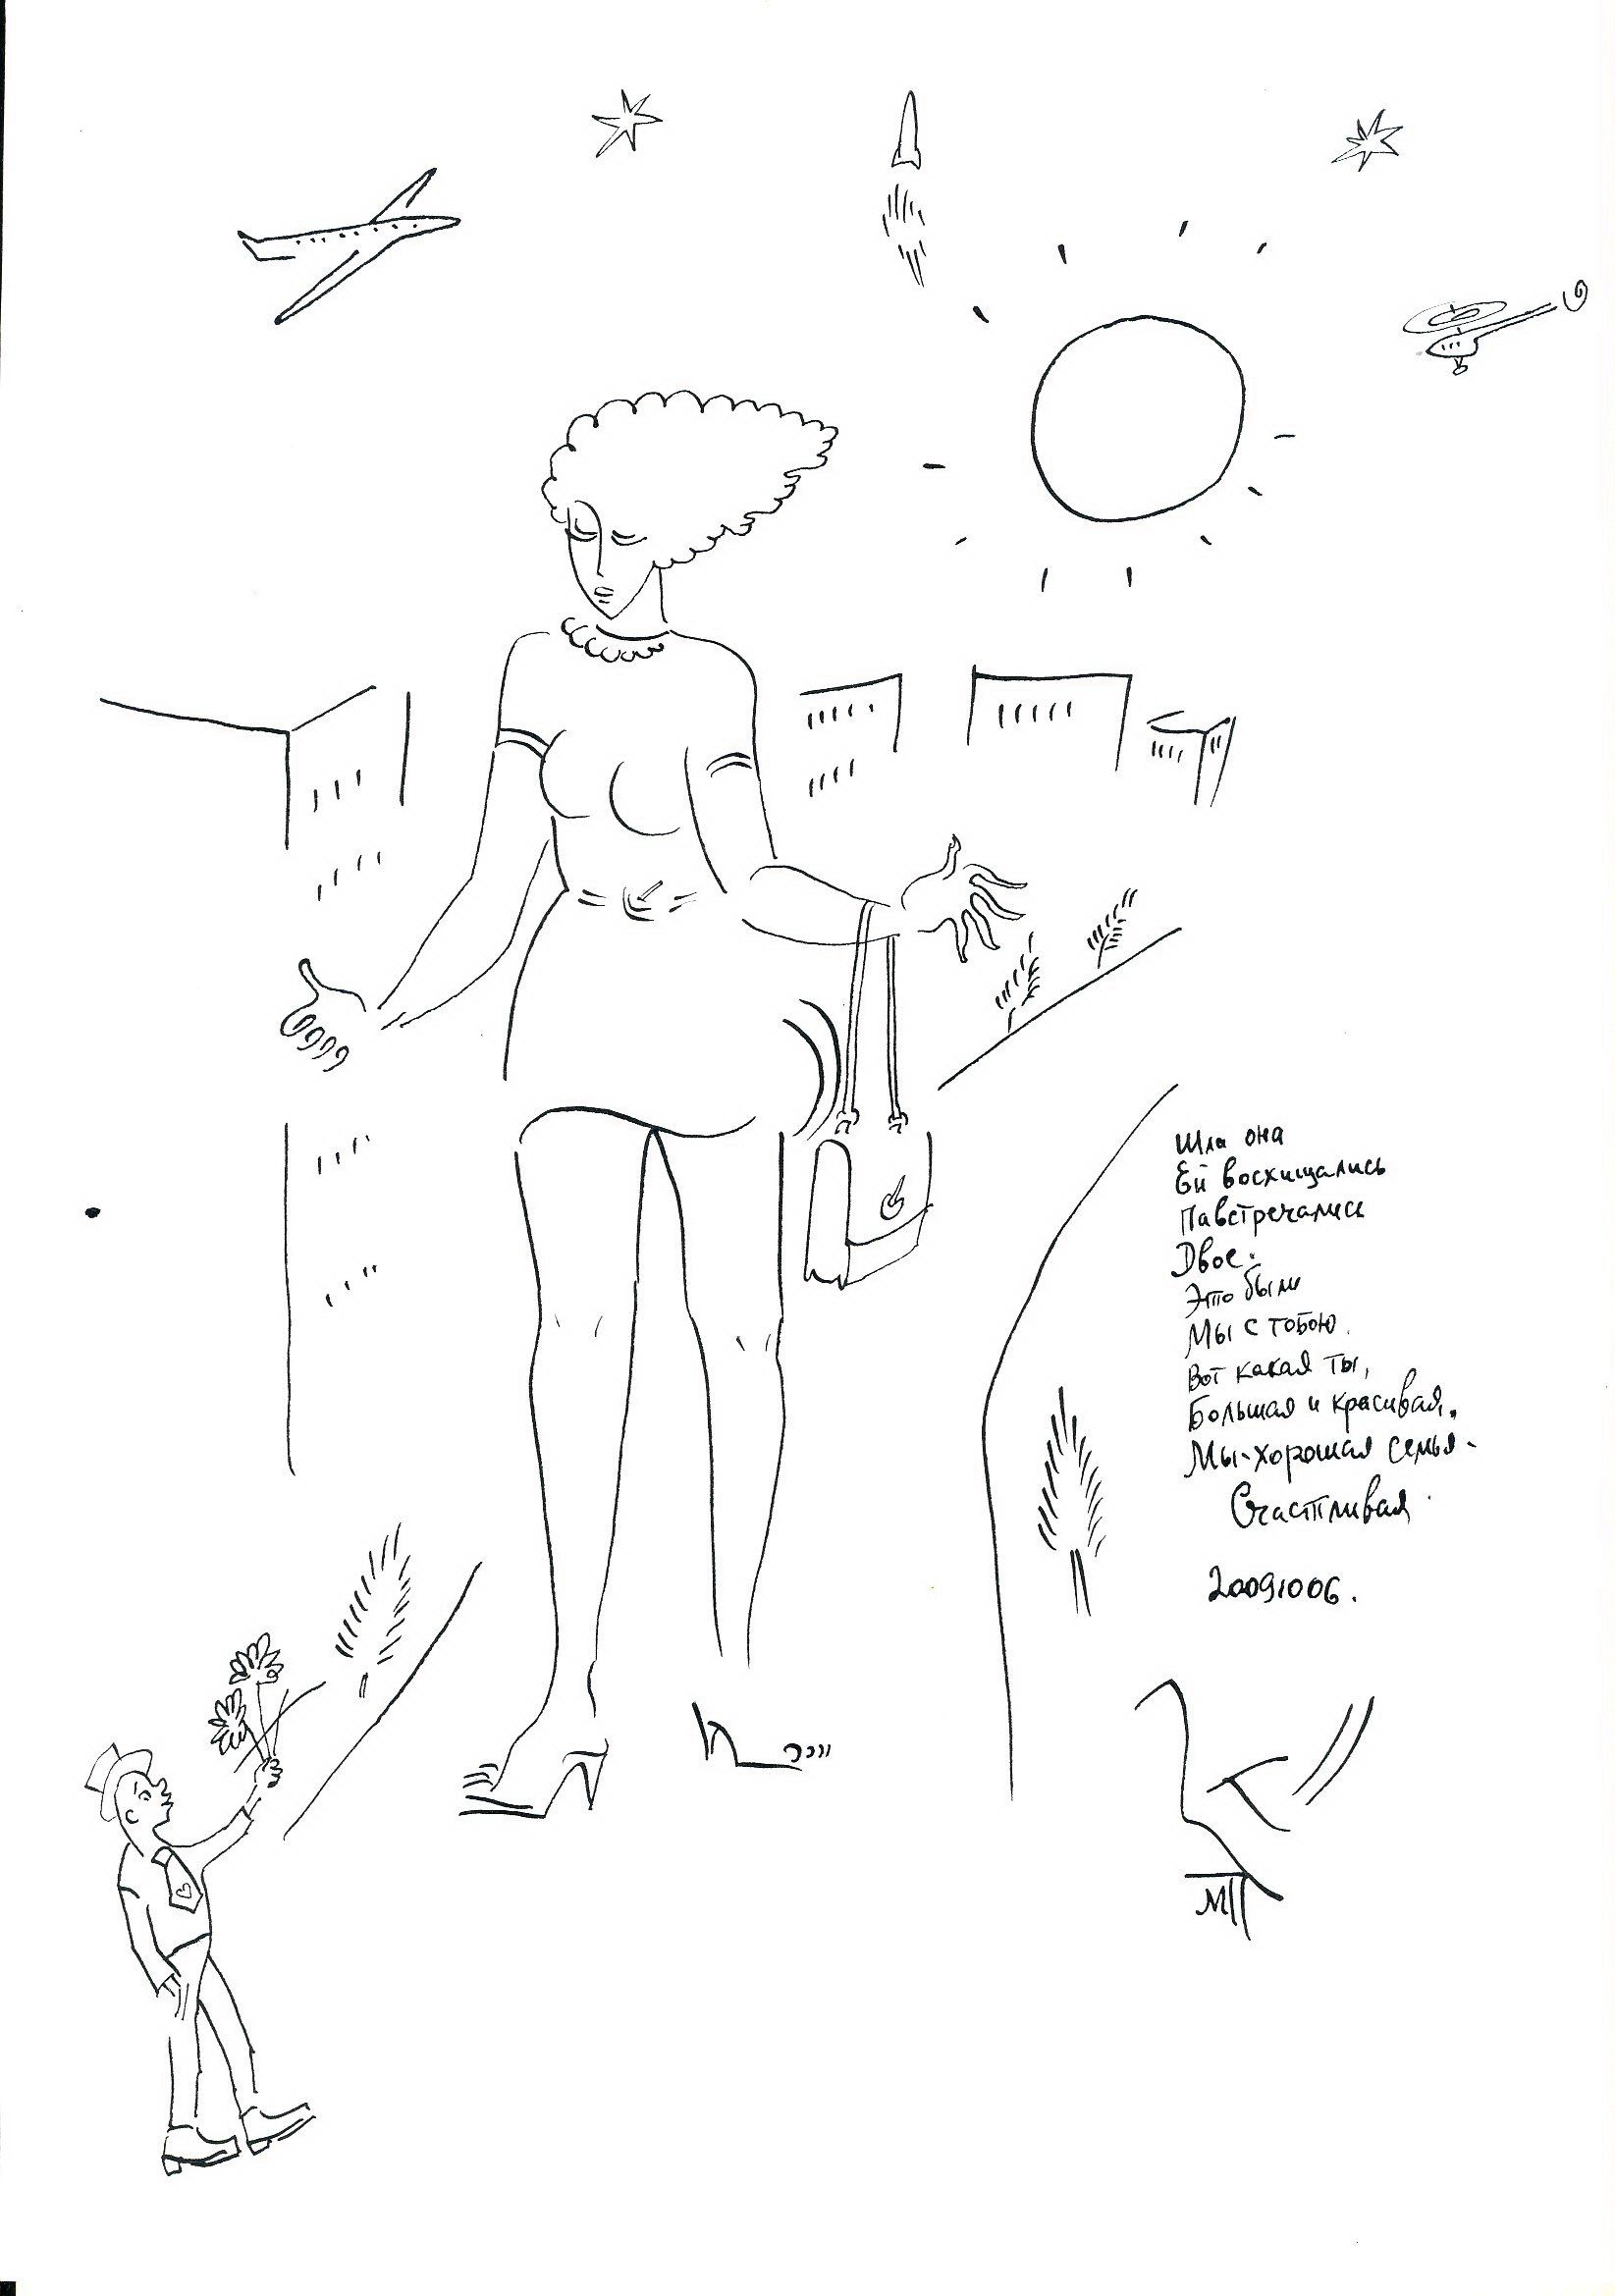 Шла она
Ей восхищались
Павстречались
Двое.
Это были
Мы с тобою.
Вот какая ты,
Большая и красивая.
Мы-хорошая семья-
Счастливая.
20091006.
МП